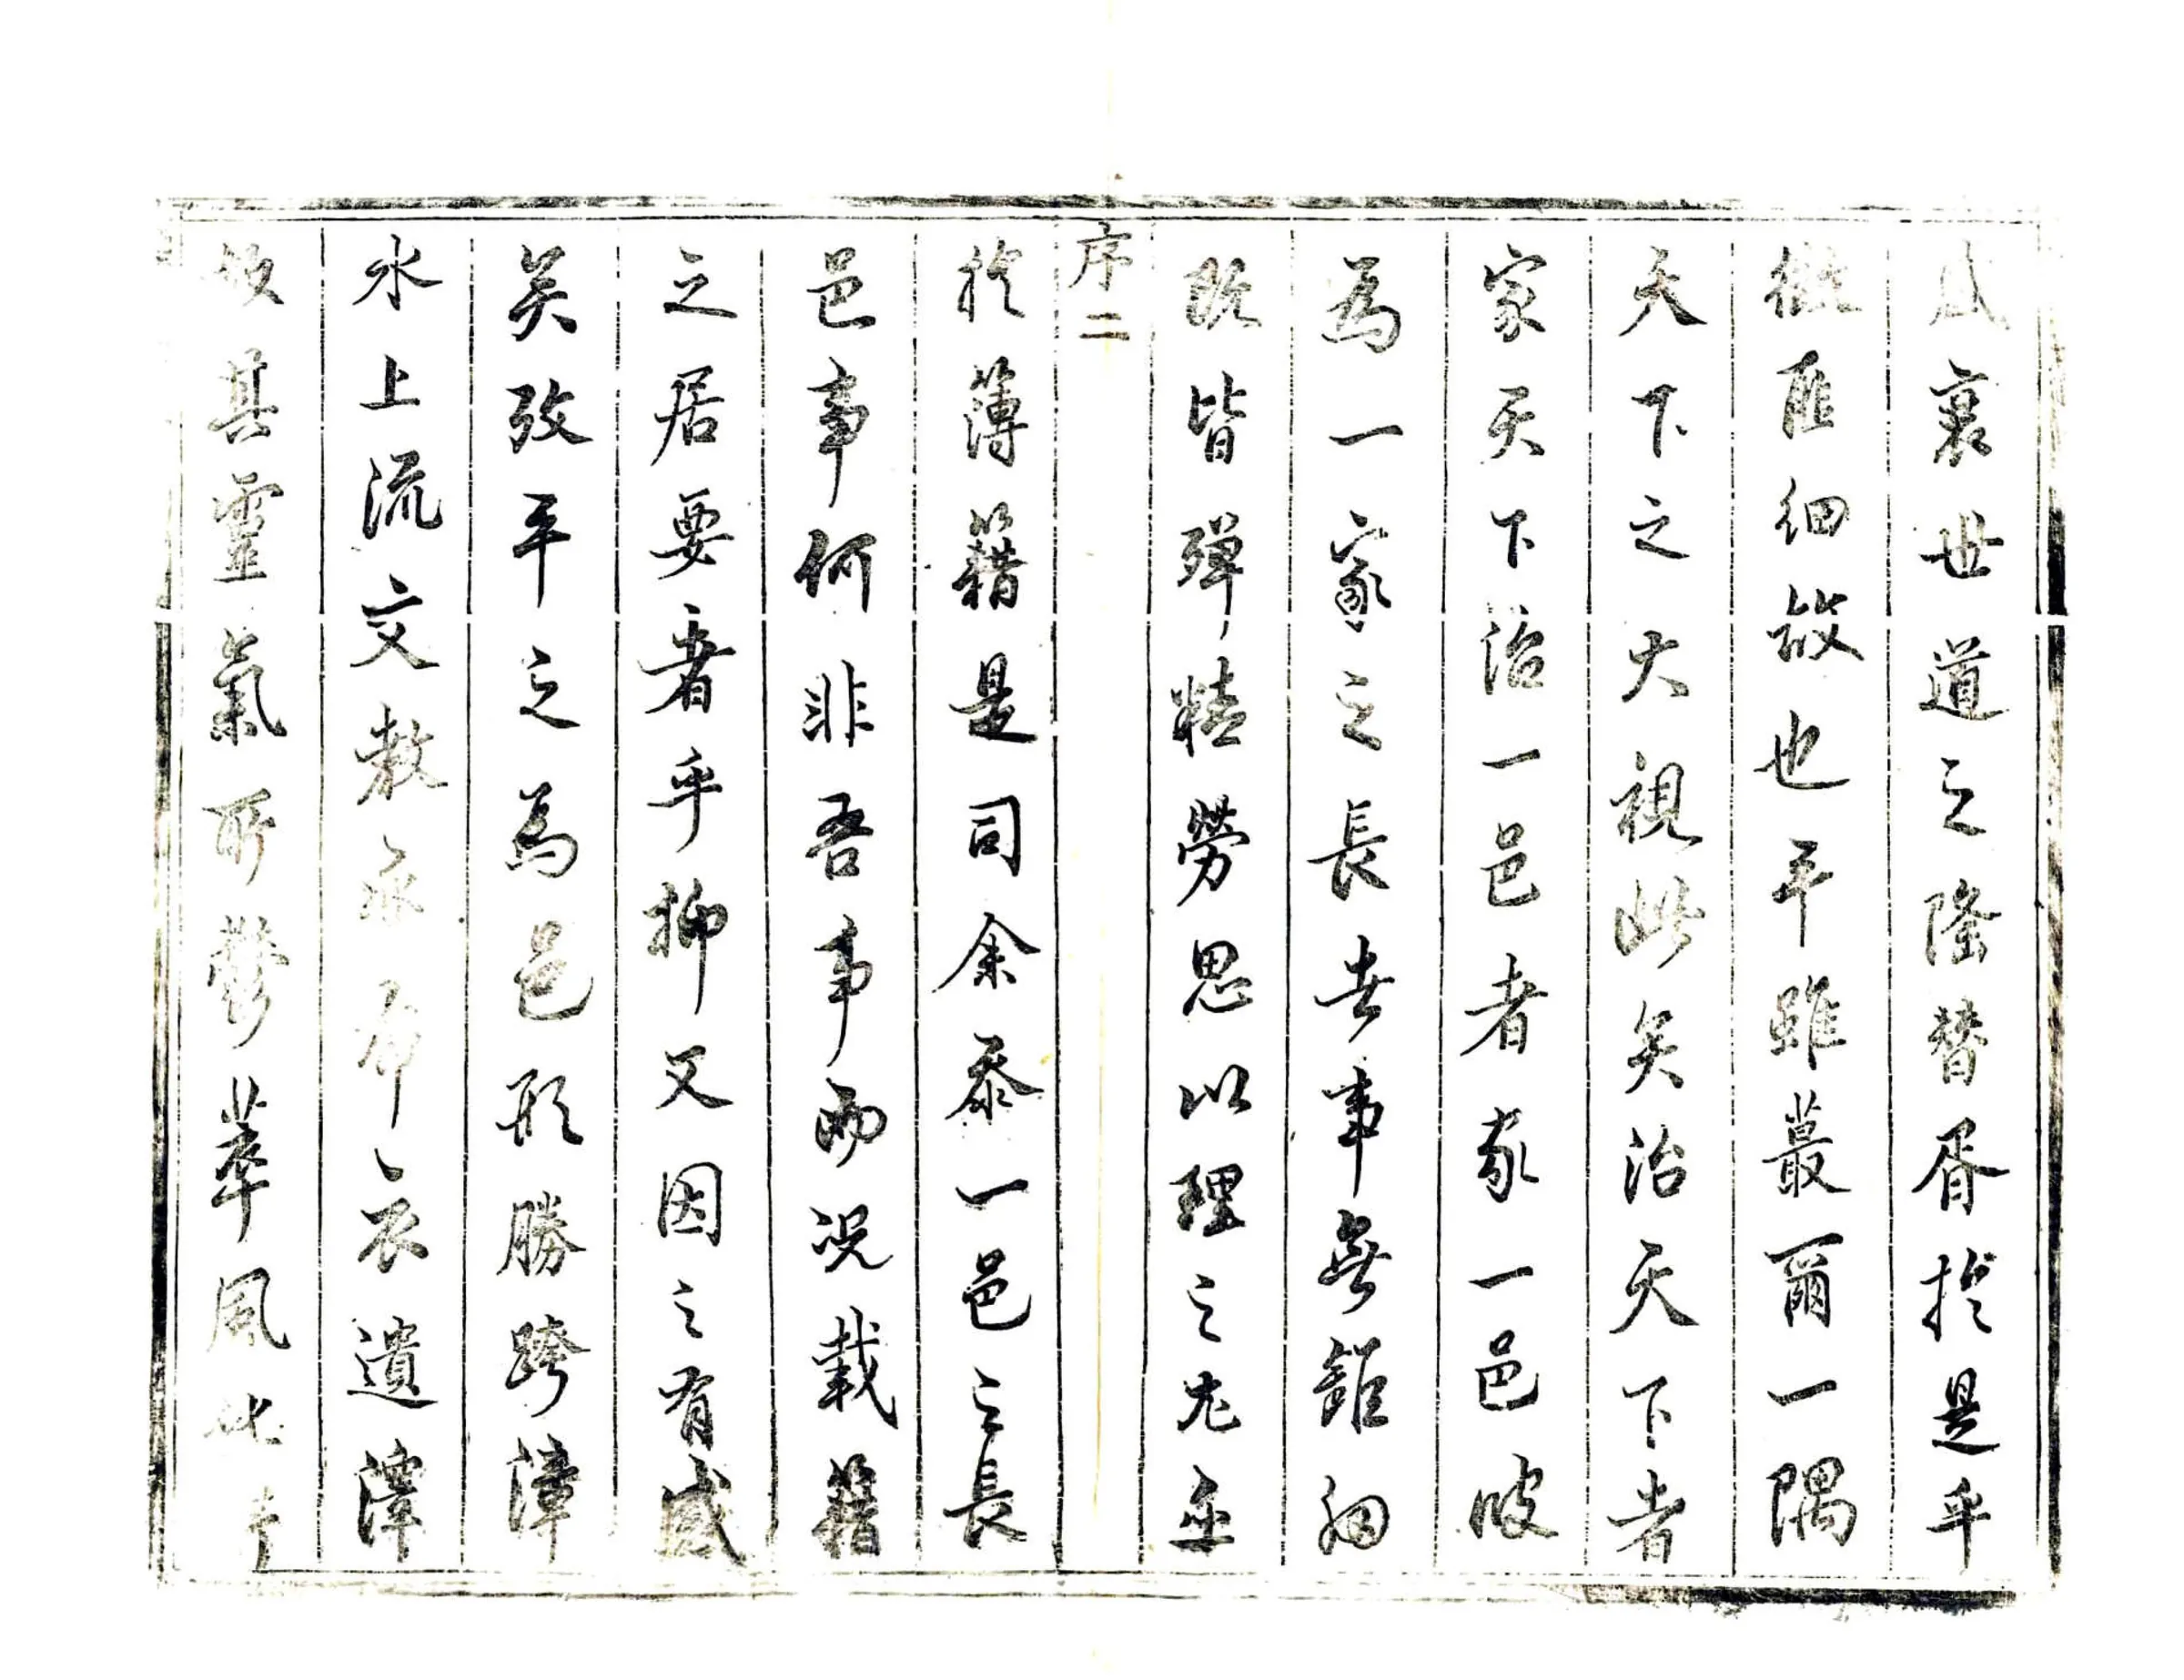 衰世道之隆替胥於是乎
徵匪細故也平雖蕞爾一隅
天下之大視此矣治天下者
家天下治一邑者家一邑彼
為一家之長者事無鉅細
既皆殫精勞思以理之尤亟
序二
於簿籍是司余忝一邑之長
邑事何非吾事而況載籍
之居要者乎抑又因之有感
矣攷平之為邑形勝跨漳
水上流文教丕布衣遺澤
故其靈氣所鬱萃風化